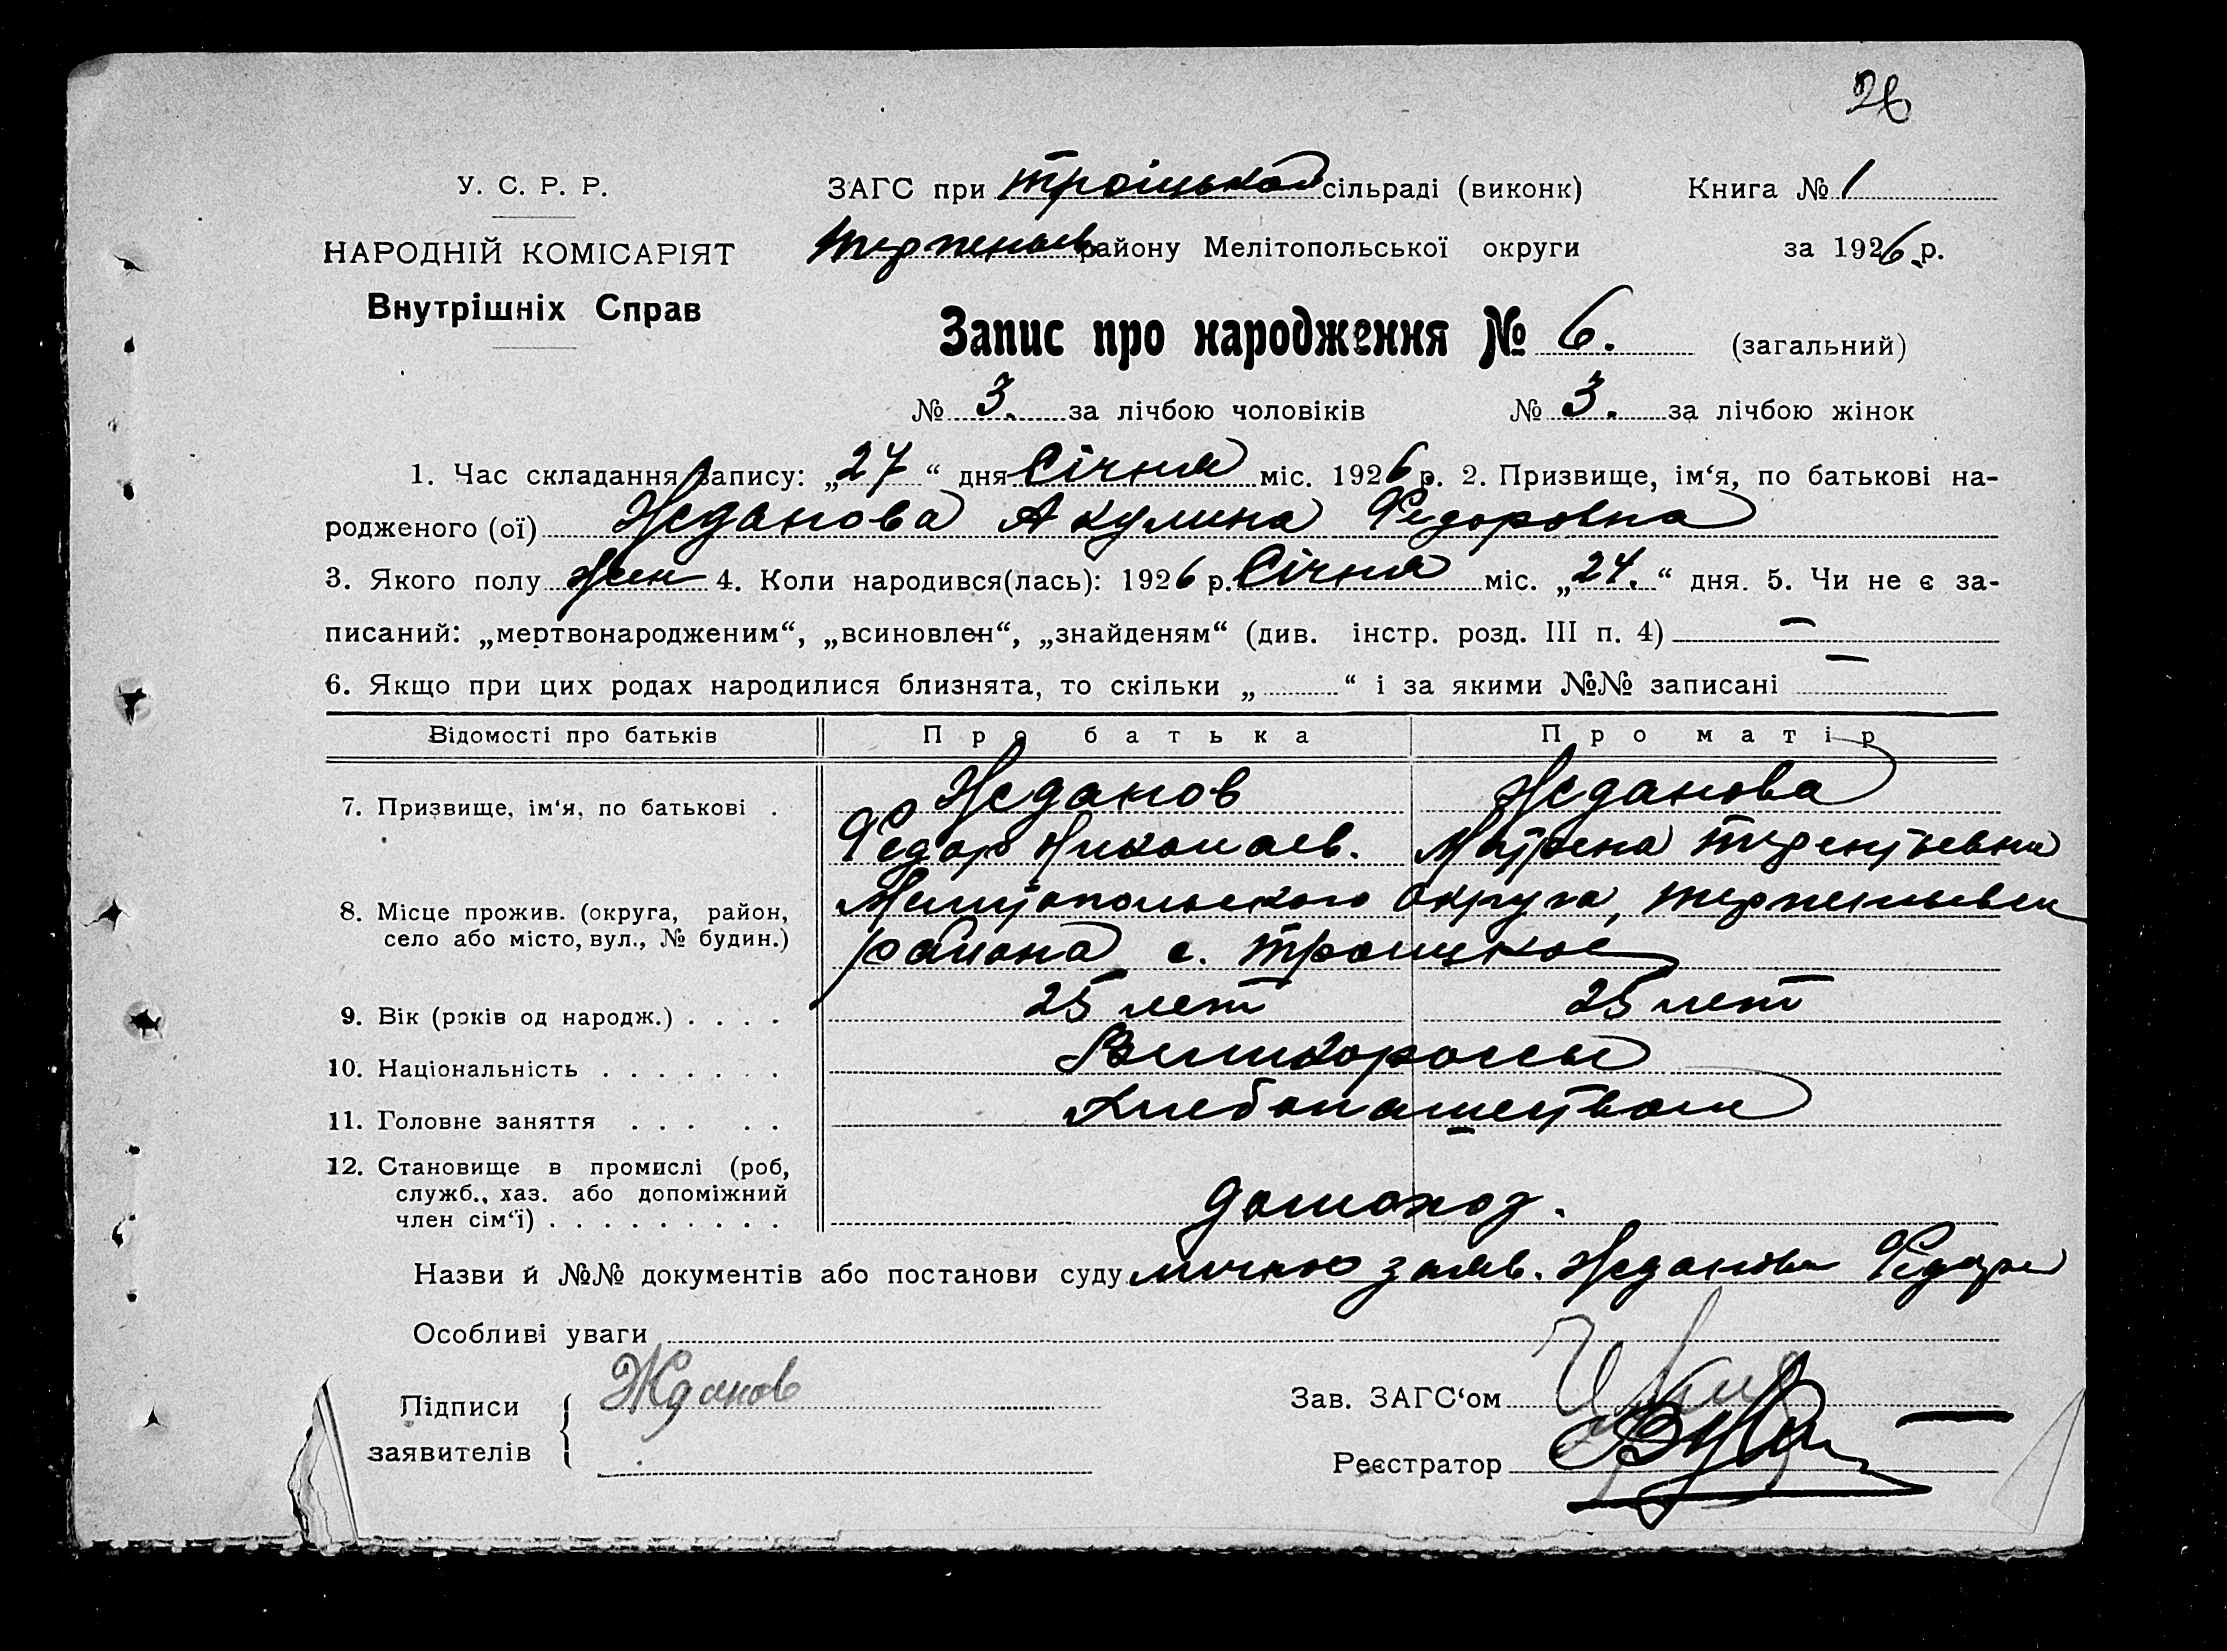 26
У. С. Р. Р.
ЗАГС при Троіцькой сільраді (виконк) Книга № 1
НАРОДНІЙ КОМІСАРІЯТ
Терпеньев району Мелітопольської округи за 1926 р.
Внутрішніх Справ
Запис про народження № 6. (загальний)
№ 3. за лічбою чоловіків № 3. за лічбою жінок
1. Час складання запису: „27“ дня Січня міс. 1926 р. 2. Призвище, ім‘я, по батькові на-
родженого (ої) Жданова Акулина Федоровна
3. Якого полу жен 4. Коли народився(лась): 1926 р. Січня міс. „24.“ дня. 5. Чи не є за-
писаний: „мертвонародженим“, „всиновлен“, „знайденям“ (див. інстр. розд. III п. 4) —
6. Якщо при цих родах народилися близнята, то скільки „ “ і за якими №№ записані —
Відомості про батьків Про батька Про матір
7. Призвище, ім‘я, по батькові . Жданов Жданова
Федор Николаев. Матрена Терентьевна
8. Місце прожив. (округа, район, село або місто, вул., № будин.) Мелитопольского округа, Терпеньевск
района с. Троицкое
9. Вік (років од народж.) . . . . 25 лет 25 лет
10. Національність . . . . . . . Великороссы
11. Головне заняття . . . . . Хлебопашеством
12. Становище в промислі (роб,
служб., хаз. або допоміжний
член сім‘ї) . . . . . . . . . домохоз.
Назви й №№ документів або постанови суду личною заяв. Жданова Федора
Особливі уваги
Підписи Жданов Зав. ЗАГС‘ом
заявителів Реєстратор